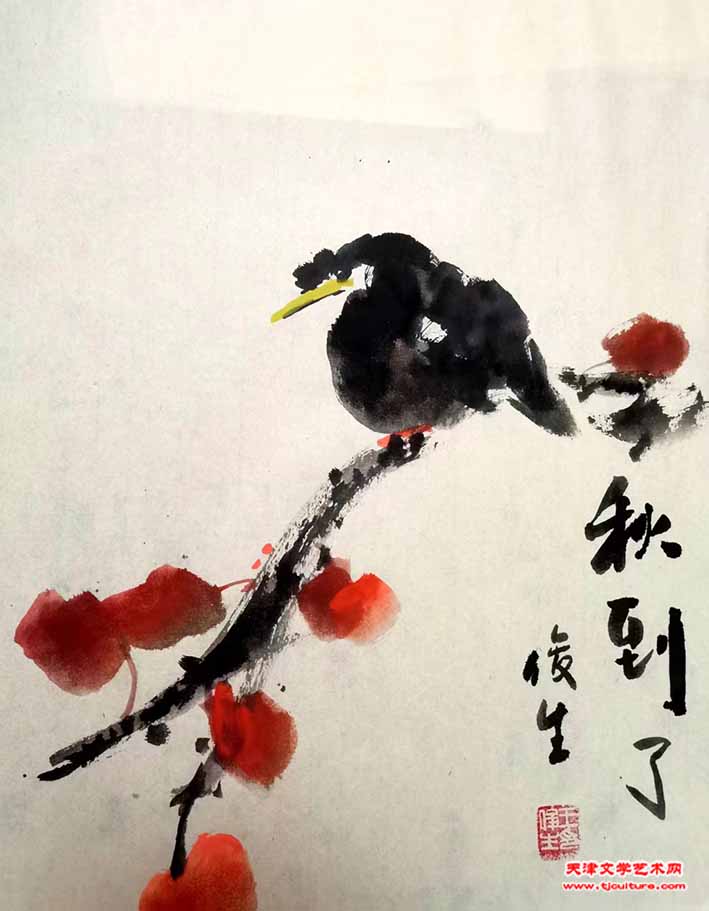 秋到了
俊生
天津文学艺术网
www.tjculture.com